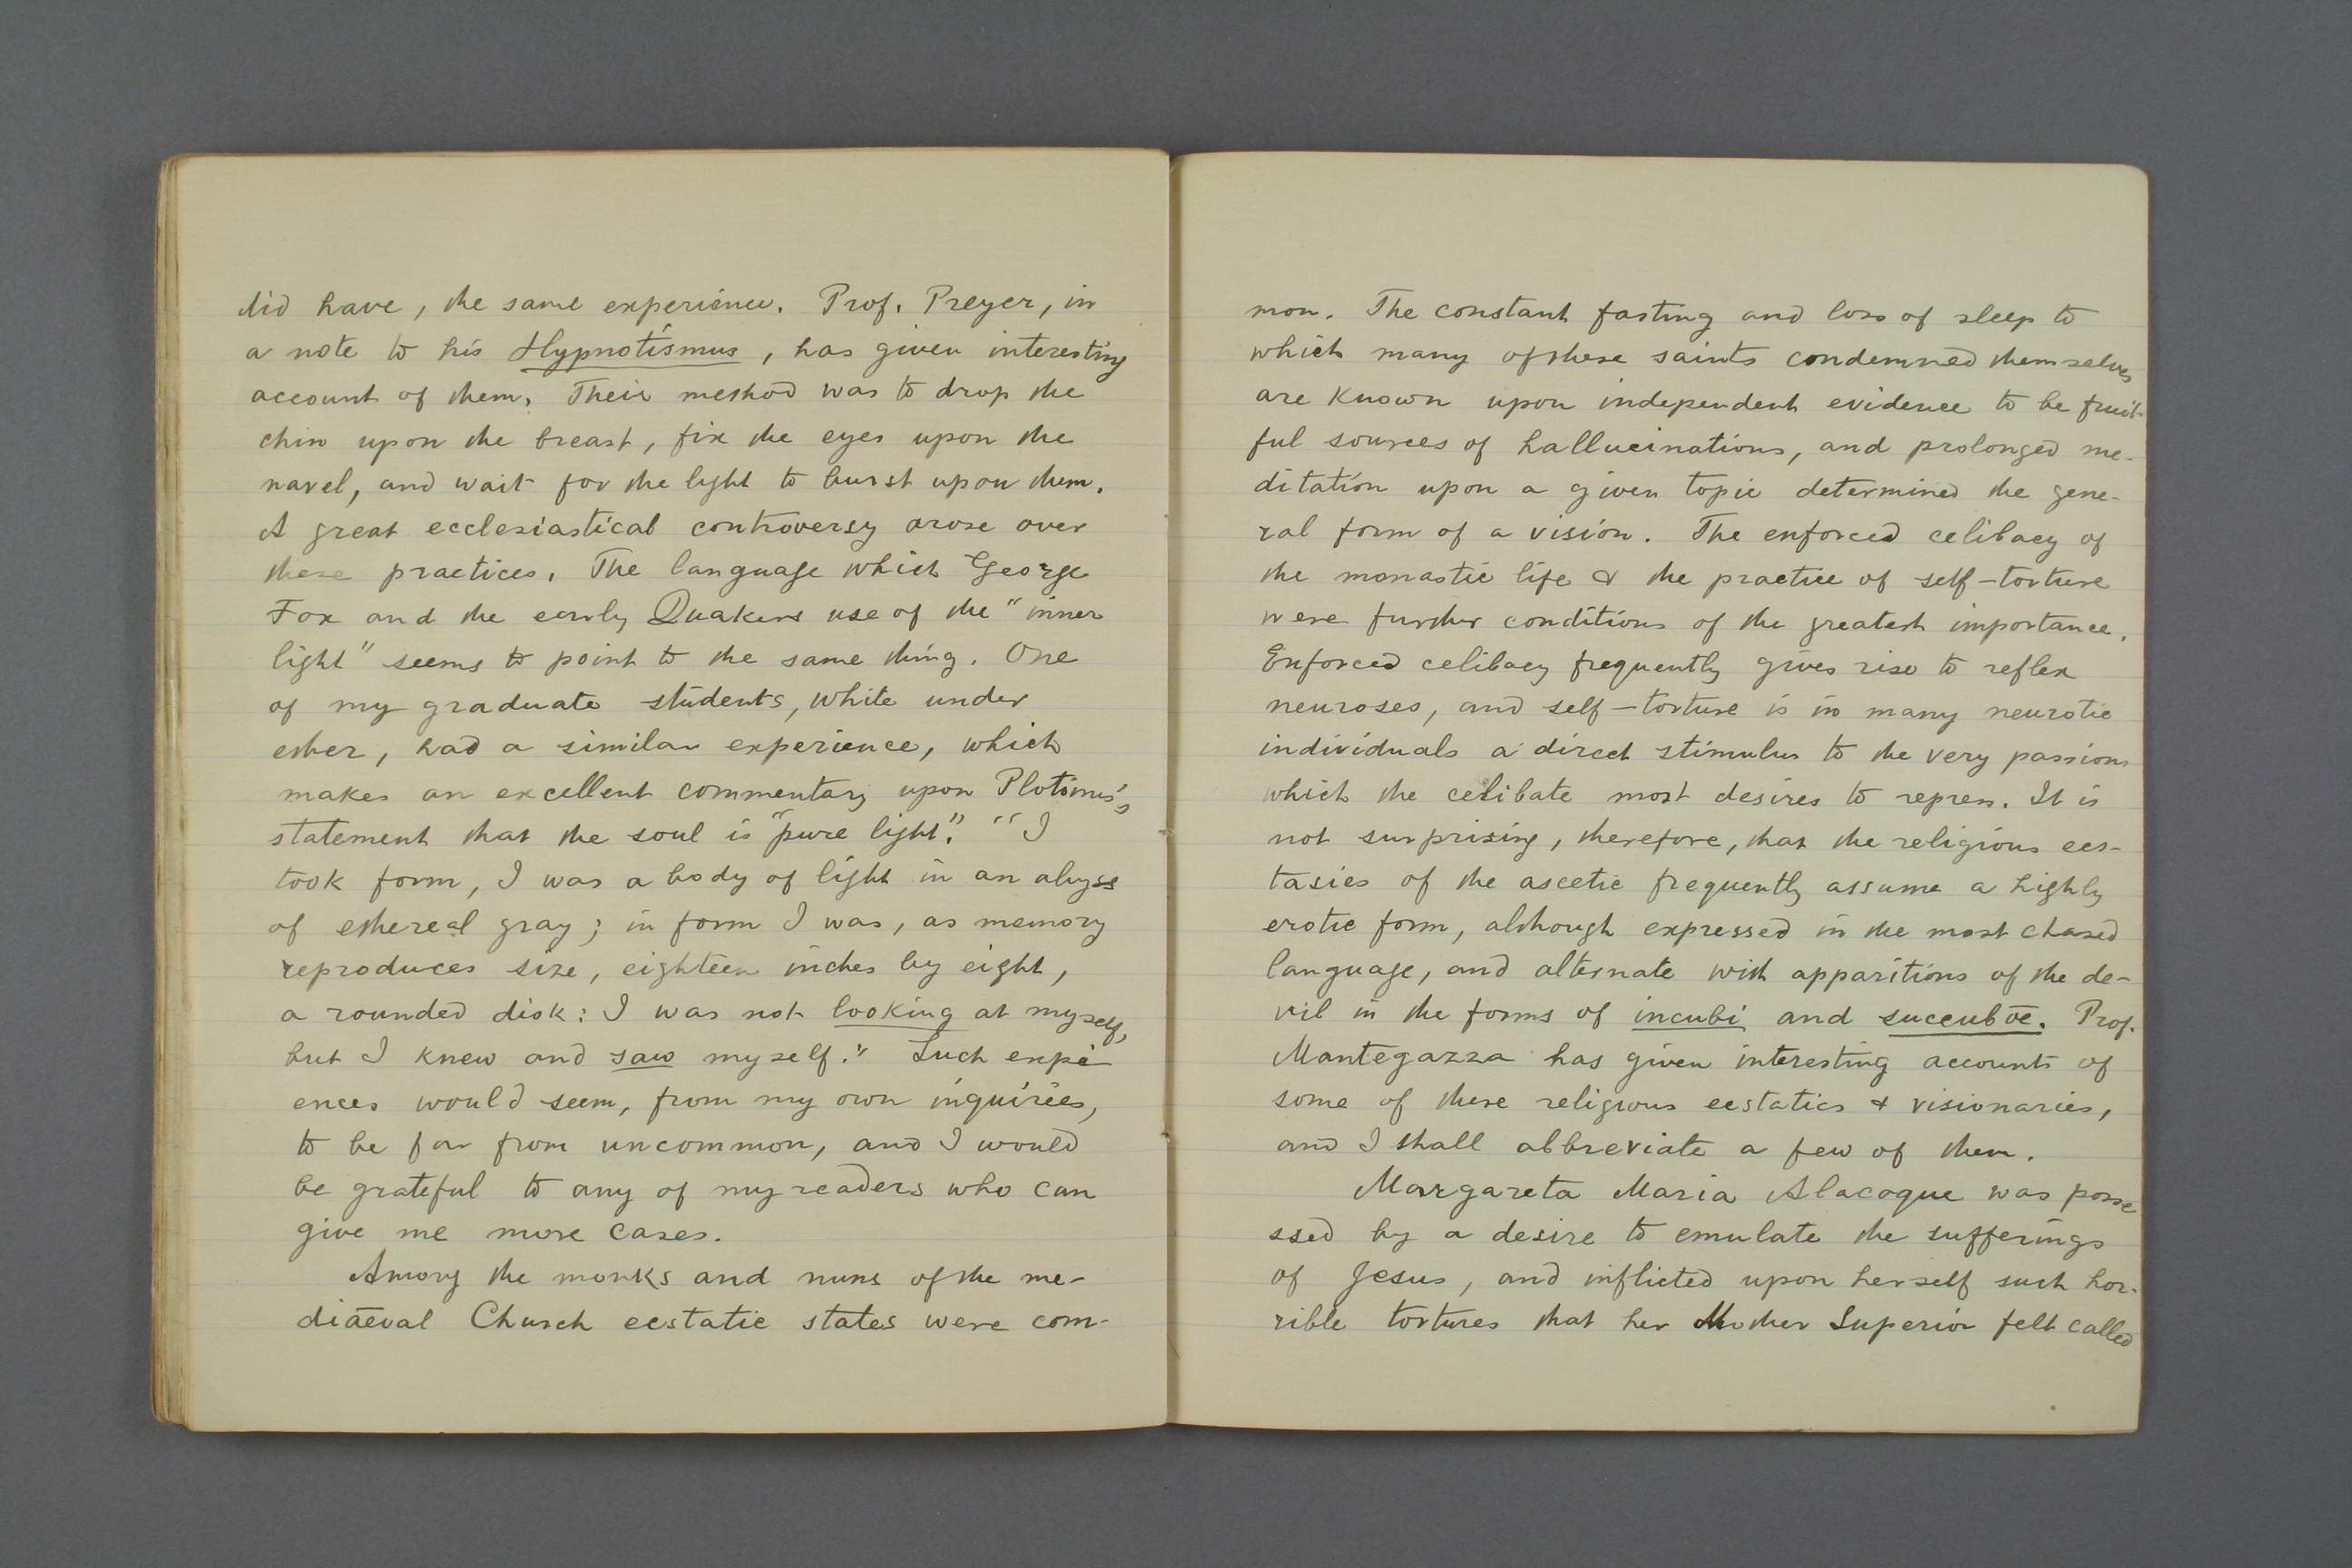 did have, the same experience. Prof. Preyer, in
a note to his Hypnotismus, has given interesting
account of them. Their method was to drop the
chin upon the breast, fix the eyes upon the
navel, and wait for the light to burst upon them.
A great ecclesiastical controversy arose over
these practices. The language which George
Fox and the early Quakers use of the "inner
light" seems to point to the same thing. One
of my graduate students, while under
ether, had a similar experience, which
makes an excellent commentary upon Plotinus's
statement that the soul is "pure light". "I
took form, I was a body of light in an abyss
of ethereal gray; in form I was, as memory
reproduces size, eighteen inches by eight,
a rounded disk: I was not looking at myself,
but I knew and saw myself." Such expe-
ences would seem, from my own inquiries,
to be far from uncommon, and I would
be grateful to any of my readers who can
give me more cases.
Among the monks and nuns of the me-
diaeval Church ecstatic states were com-
mon. The constant fasting and loss of sleep to
which many of these saints condemned themselves
are known upon independent evidence to be fruit-
ful sources of hallucinations, and prolonged me-
ditation upon a given topic determined the gene-
ral form of a vision. The enforced celibacy of
the monastic life & the practice of self-torture
were further conditions of the greatest importance.
Enforced celibacy frequently gives rise to reflex
neuroses, and self-torture is in many neurotic
individuals a direct stimulus to the very passions
which the celibate most desires to repress. It is
not surprising, therefore, that the religious ecs-
tasies of the ascetic frequently assume a highly
erotic form, although expressed in the most chased
language, and alternate with apparitions of the de-
vil in the forms of incubi and succubœ. Prof.
Mantegazza has given interesting accounts of
some of these religious ecstatics & visionaries,
and I shall abbreviate a few of them.
Margareta Maria Alacoque was posse
ssed by a desire to emulate the sufferings
of Jesus, and inflicted upon herself such hor-
rible tortures that her Mother Superior felt called